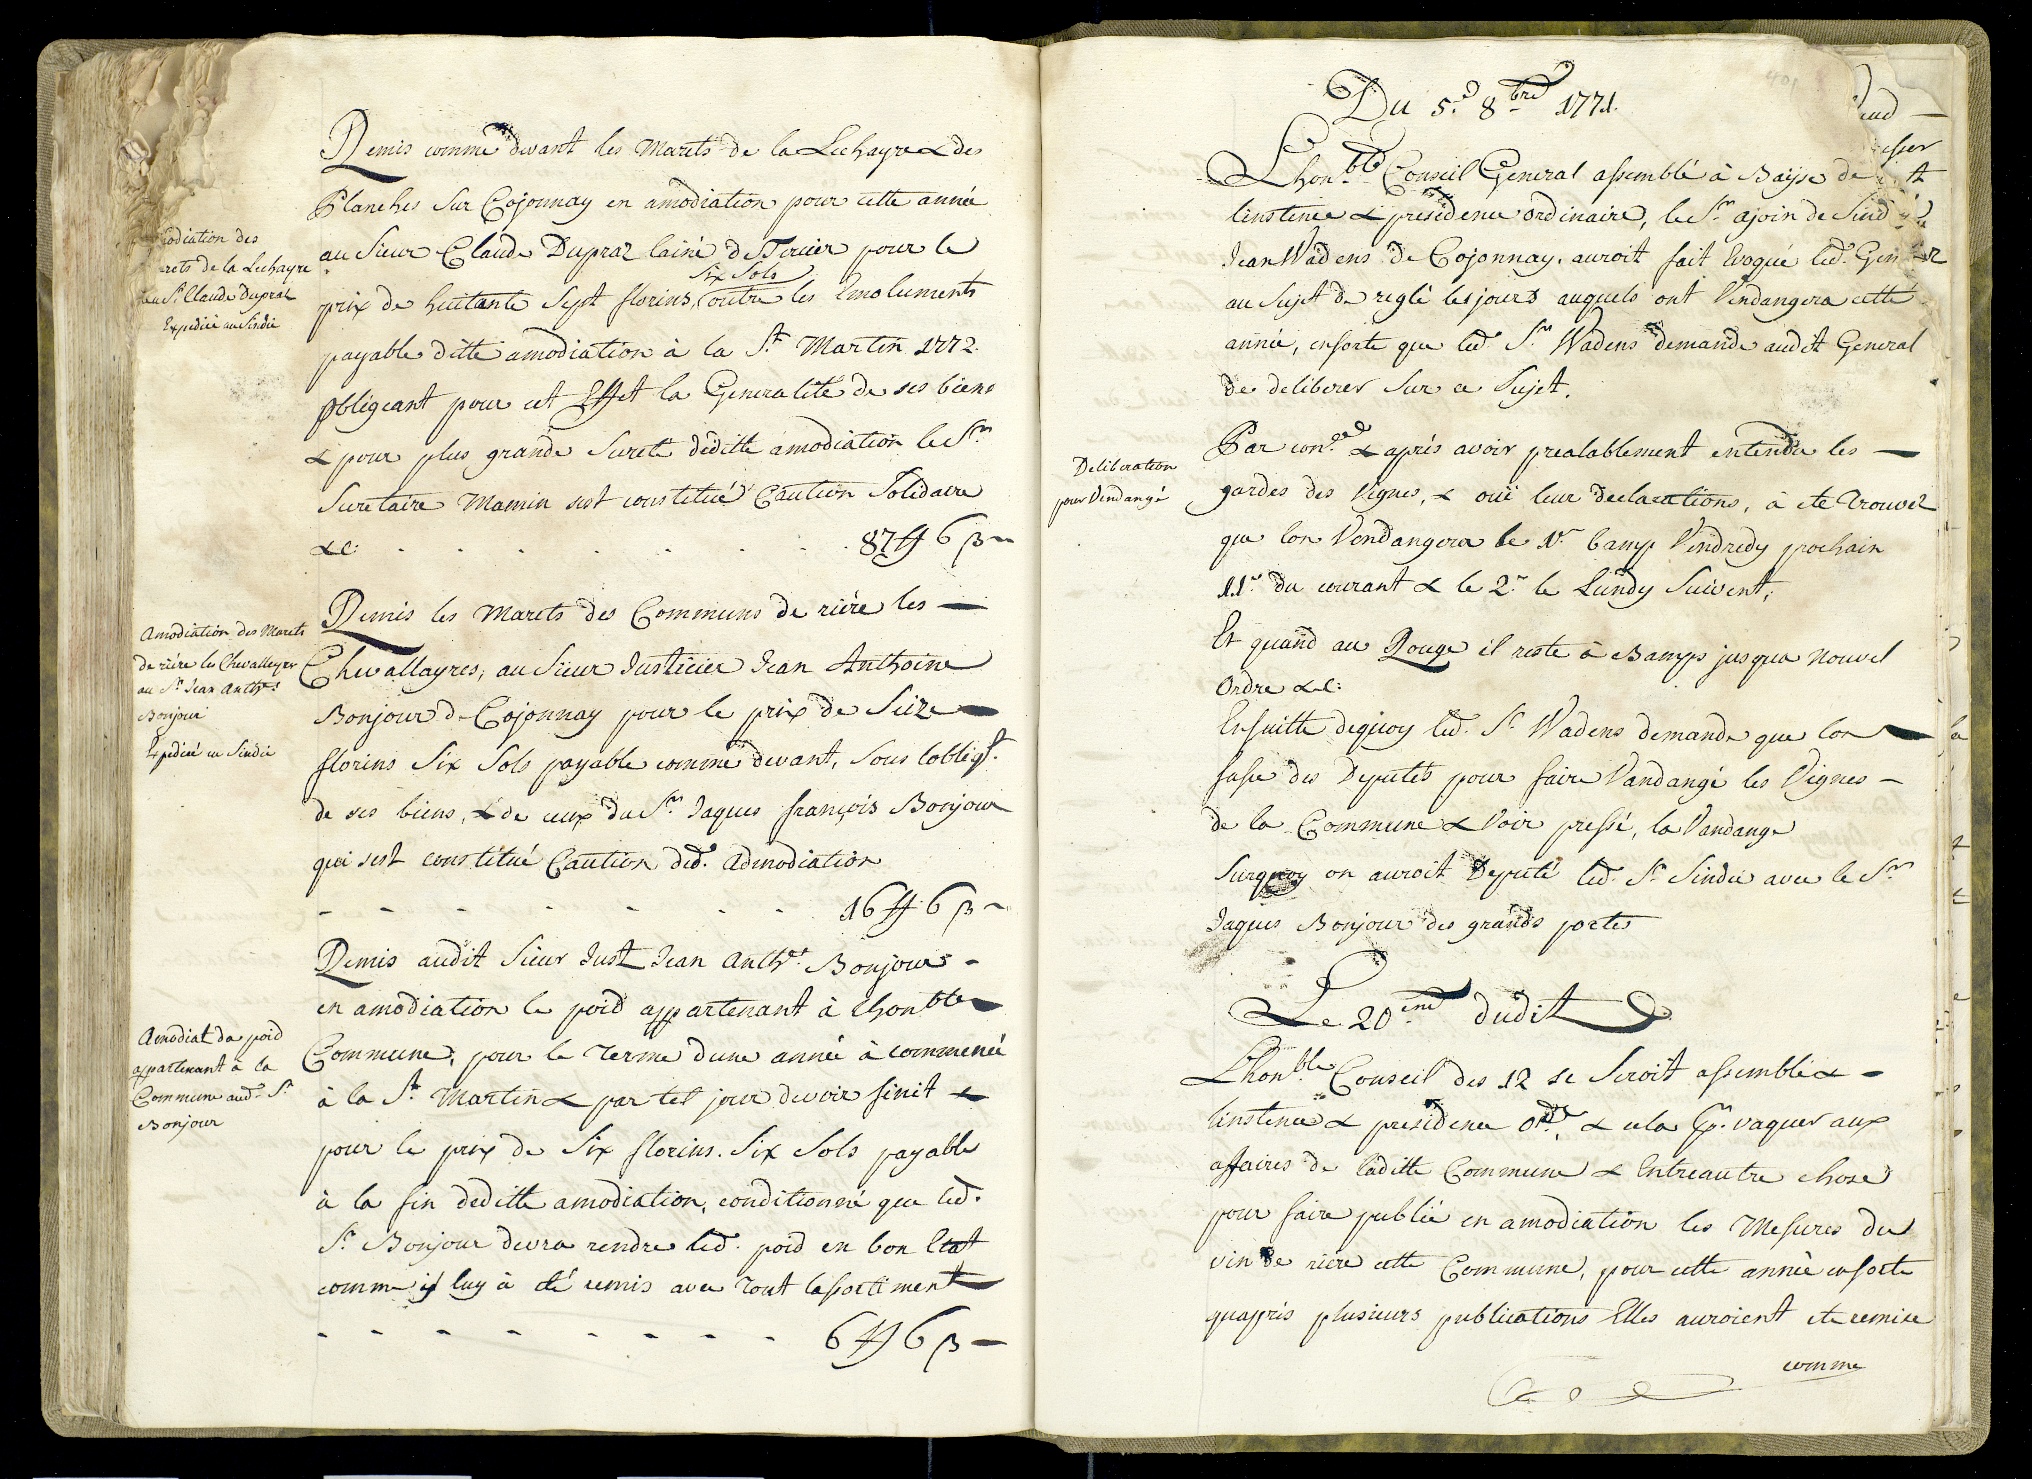 Remis comme devant les Marets de la Lechayre & des
Planches sur Cojonnay en amodiation pour cette année
au Sieur Claude Dupraz lainé de Tercier pour le
six sols
prix de huitante sept florins, outre les Emoluments
payable ditte amodiation à la St. Martin 1772.
obligeant pour cet Effet la Generalité de ses biens
& pour plus grande Sureté dèditte amodiation le Sr.
Secretaire Mamin sest constitué Caution Solidaire
&c. . . . . . . . . . 87 ff 6 β -
odiation des
rets de la Lechayre
au Sr. Claude Dupraz
Expedié au Sindic
Remis les Marets des Communs de riére les —
Chevallayres, au Sieur Justicier Jean Anthoine
Bonjour de Cojonnay pour le prix de Seize —
florins Six Sols payable comme devant, Sous lobligt.
de ses biens, & de ceux du Sr. Jaques françois Bonjour
qui sest constitué Caution ded. Admodiation
- - - - - - - 16 ff 6 β -
Amodiation des Marets
de riére les Chevalleyres
au Sr. Jean Anthe.
Bonjour
Expedié au Sindic
Remis audit Sieur Just. Jean Anthe. Bonjour -
en amodiation le poid appartenant à Lhonble
Commune, pour le Terme dune année à commencé
à la St. Martin & par tel jour devoir finit &
pour le prix de Six florins. Six Sols payable
à la fin dèditte amodiation, conditionné que led.
Sr. Bonjour devra rendre led. poid en bon Etat
comme il luy à été remis avec Tout lassortiment
- - - - - - - - 6 ff 6 β —
Amodiat du poid
appartenant à la
Commune aud. Sr.
Bonjour
Du 5.e 8bre 1771.
Lhonble Conseil General assemblé à Baÿse de
linstence & présidence ordinaire, le Sr. ajoin de Sind
Jean Wadens de Cojonnay. auroit fait Evoqué led. Gen
au Sujet de reglé les jours auquels ont Vendangera cette
année, ensorte que led. Sr. Wadens demande audit General
de deliberer Sur ce Sujet.
Par con. & aprés avoir prealablement entendu les —
gardes des Vignes, & ouï leur declarations, à été Trouvez
que lon Vendangera le 1r. bamp Vendredy prochain
11e. du courant & le 2e. le Lundy Suivent,
Et quand au Rouge il reste à Bamps jusqua nouvel
Ordre &c:
Deliberation
pour Vendangé
Ensuitte dequoy led. Sr. Wadens demande que lon
fasse des Députés pour faire Vandangé les Vignes —
de la Commune & Voir pressé, la Vandange
Surquoy on auroit Deputé led. Sr. Sindic avec le Sr.
Jaques Bonjour des grands portes
Le 20eme dudit
Lhonble Conseil des 12 se Seroit assemblé &
linstence & présidence Ord., & cela pr. vaquer aux
affaires de laditte Commune & Entreautre chose
pour faire publié en amodiation les Mesures du
vin de riére cette Commune, pour cette année ensorte
quaprés plusieurs publications Elles auroient été remise
comme